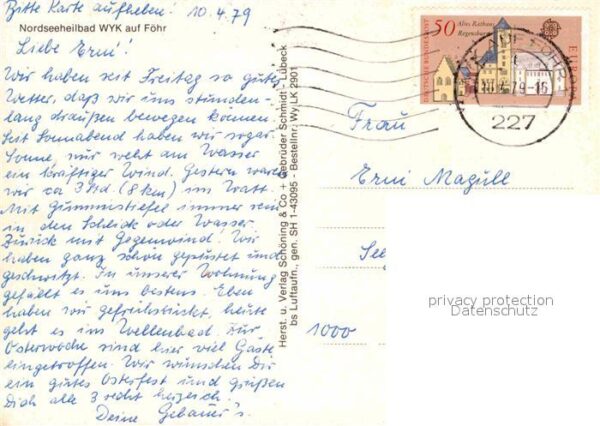 Bitte Karte aufheben! 10.4.79
Nordseeheilbad WYK auf Föhr
Liebe Erni!
Wir haben seit Freitag so gutes
Wetter, daß wir uns stunden-
lang draußen bewegen können.
Seit Sonnabend haben wir sogar
Sonne, nur weht am Wasser
ein kräftiger Wind. Gestern waren
wir ca 3 Std (8km) im Watt.
Mit Gummistiefel immer rein
in den Schlick oder Wasser.
Zurück mit Gegenwind. Wir
haben ganz schön gepustet und
geschwitzt. In unserer Wohnung
gefällt es uns bestens. Eben
haben wir gefrühstückt, heute
geht es ins Wellenbad. Zur
Osterwoche sind hier viel Gäste
eingetroffen. Wir wünschen Dir
ein gutes Osterfest und grüßen
Dich alle 3 recht herzlich.
Deine Gebauer's.
Herst. u. Verlag Schöning & Co + Gebrüder Schmidt · Lübeck
bs Luftaufn., gen. SH 1-43095 - Bestellnr.: Wy LK 2901
50 Altes Rathaus
Regensburg
DEUTSCHE BUNDESPOST
EUROPA
CEPT
79-15
227
Frau
Erni Magull
See
1000
privacy protection
Datenschutz